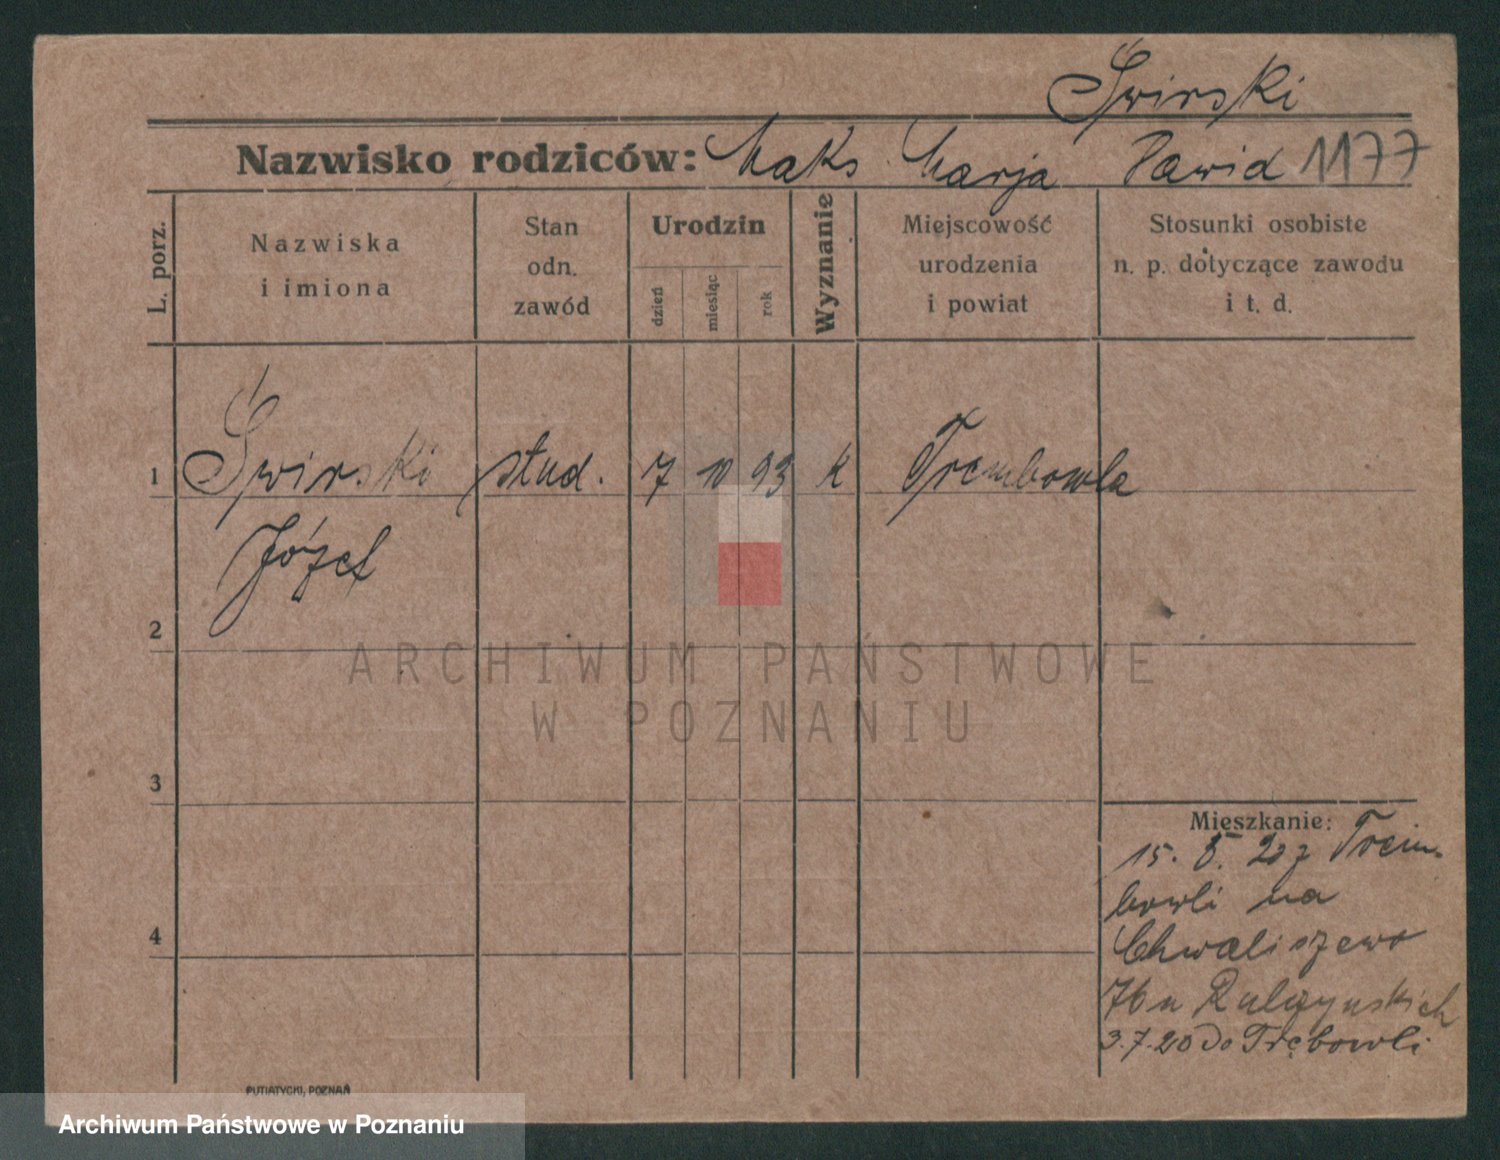 Świrski
Nazwisko rodziców: Maks Marja Dawid 1177
L. porz.
Nazwiska
i imiona
Stan
odn.
zawód
Urodzin
dzień
miesiąc
rok
Wyznanie
Miejscowość
urodzenia
i powiat
Stosunki osobiste
n. p. dotyczące zawodu
i t. d.
1 Świrski stud. 7 10 93 k Trembowla
Józef
2
ARCHIWUM PAŃSTWOWE
W POZNANIU
3
Mieszkanie:
15. 5. 20 z Trem-
bowli na
4
Chwaliszewo
76 u
3.7.20 do Trębowli
PUTIATYCKI, POZNAŃ
Archiwum Państwowe w Poznaniu